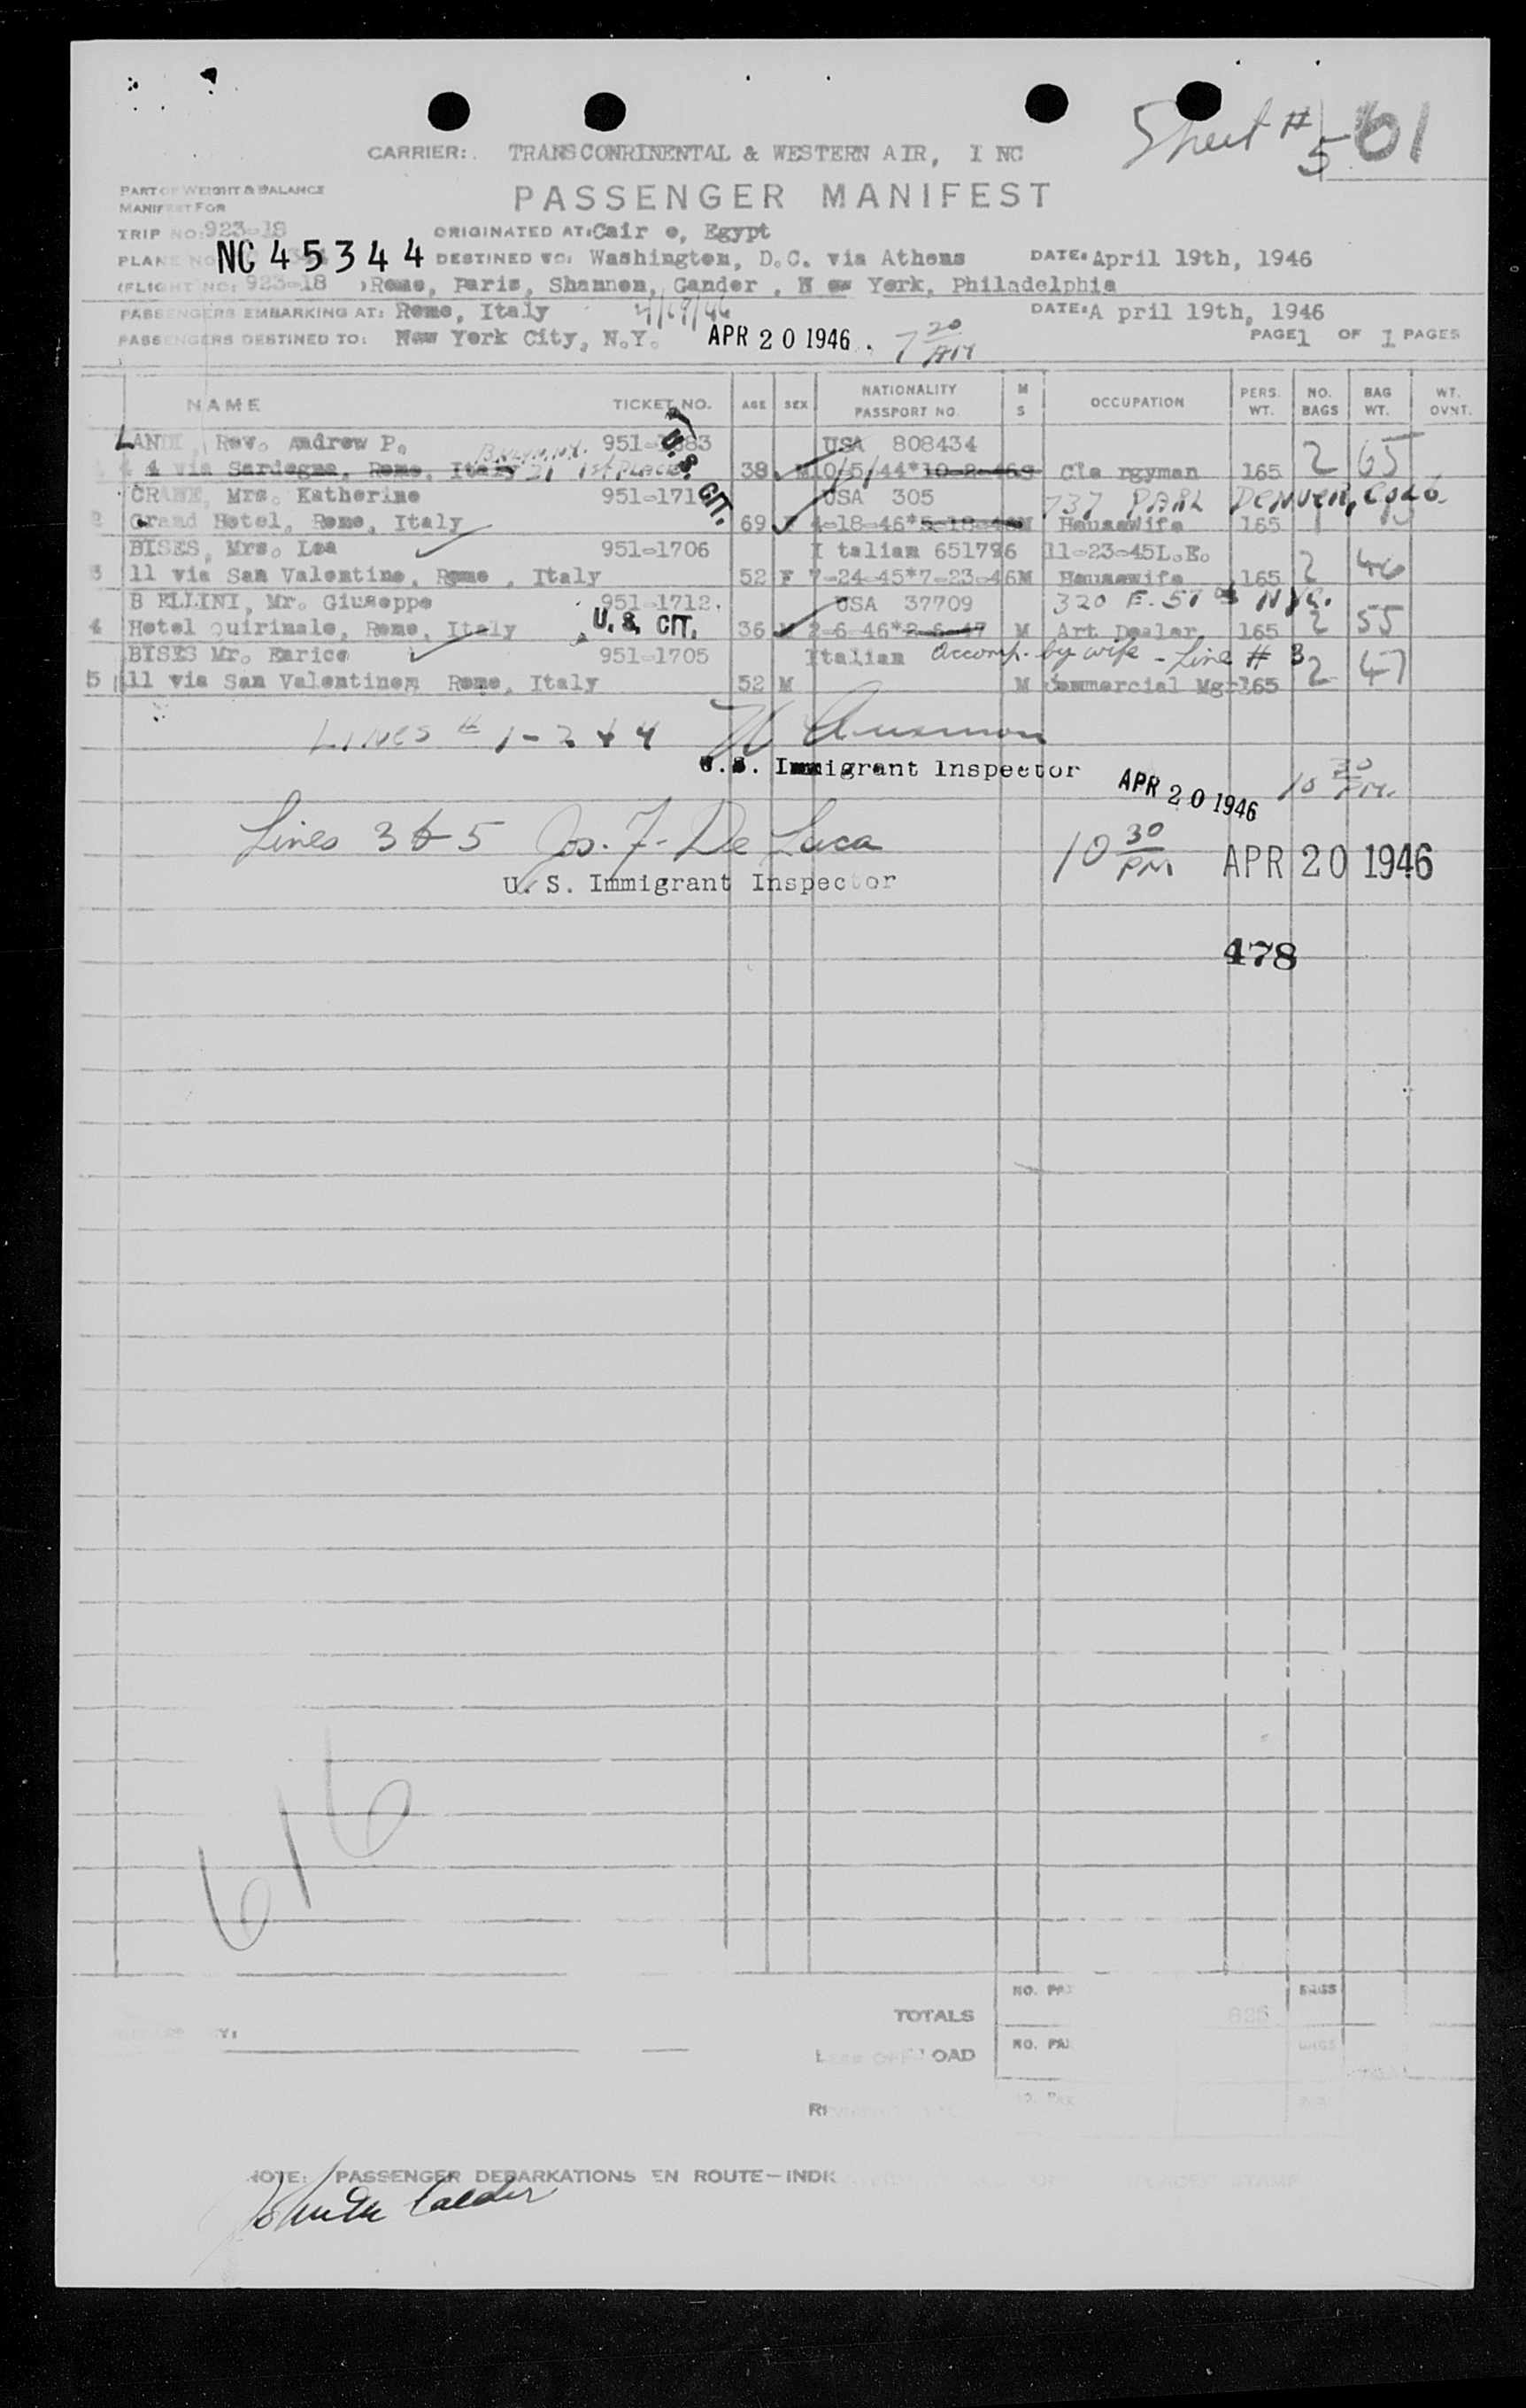 Sheet # 5 61
CARRIER: TRANSCONRINENTAL & WESTERN AIR, I NC
PART OF WEIGHT & BALANCE
MANIFEST FOR
PASSENGER MANIFEST
TRIP NO: 923-18 ORIGINATED AT: Cair o, Egypt
PLANE NO. NC 45344 DESTINED TO: Washington, D.C. via Athens DATE: April 19th, 1946
(FLIGHT NO: 923-18 ) Rome, Paris, Shannon, Gander , N ew York, Philadelphia
PASSENGERS EMBARKING AT: Rome, Italy 4/19/46 DATE: A pril 19th, 1946
PASSENGERS DESTINED TO: New York City, N.Y. APR 20 1946 . 7 20 AM PAGE 1 OF 1 PAGES
NAME TICKET NO. AGE SEX NATIONALITY PASSPORT NO. M S OCCUPATION PERS. WT. NO. BAGS BAG WT. WT. OVNT.
LANDI, Rev. Andrew P. 951- 83 USA 808434 2 65
4 via Sardegna, Rome, Italy 21 1st PLACE U.S. CIT. 38 M 10/5/44*10-2-46S Cle rgyman 165
CRANE, Mrs. Katherine 951-171 USA 305 737 PARK DENVER, COLO.
2 Grand Hotel, Rome, Italy 69 F 4-18-46*5-18-46M Housewife 165
BISES, Mrs. Lea 951-1706 I talian 651796 11-23-45L.E.
3 11 via San Valentino, Rome , Italy 52 F 7-24-45*7-23-46M Housewife 165 2 46
B ELLINI, Mr. Giuseppe 951-1712. USA 37709 320 E. 57 St NYC.
4 Hotel Quirinale, Rome, Italy U.S. CIT. 36 M 2-6-46*2-6-47 M Art Dealer 165 2 55
BISES Mr. Enrico 951-1705 Italian Accomp. by wife - Line # 3
5 11 via San Valentinom Rome, Italy 52 M M Commercial Mgr 165 2 47
LINES # 1-2 & 4
U.S. Immigrant Inspector APR 20 1946 10 30 PM.
Lines 3 & 5 Jos. F. De Luca 10 30 PM APR 20 1946
U. S. Immigrant Inspector
478
616
TOTALS NO. PAX 825 BAGS
LESS OFF LOAD NO. PAX BAGS
NOTE: PASSENGER DEBARKATIONS EN ROUTE—INDI